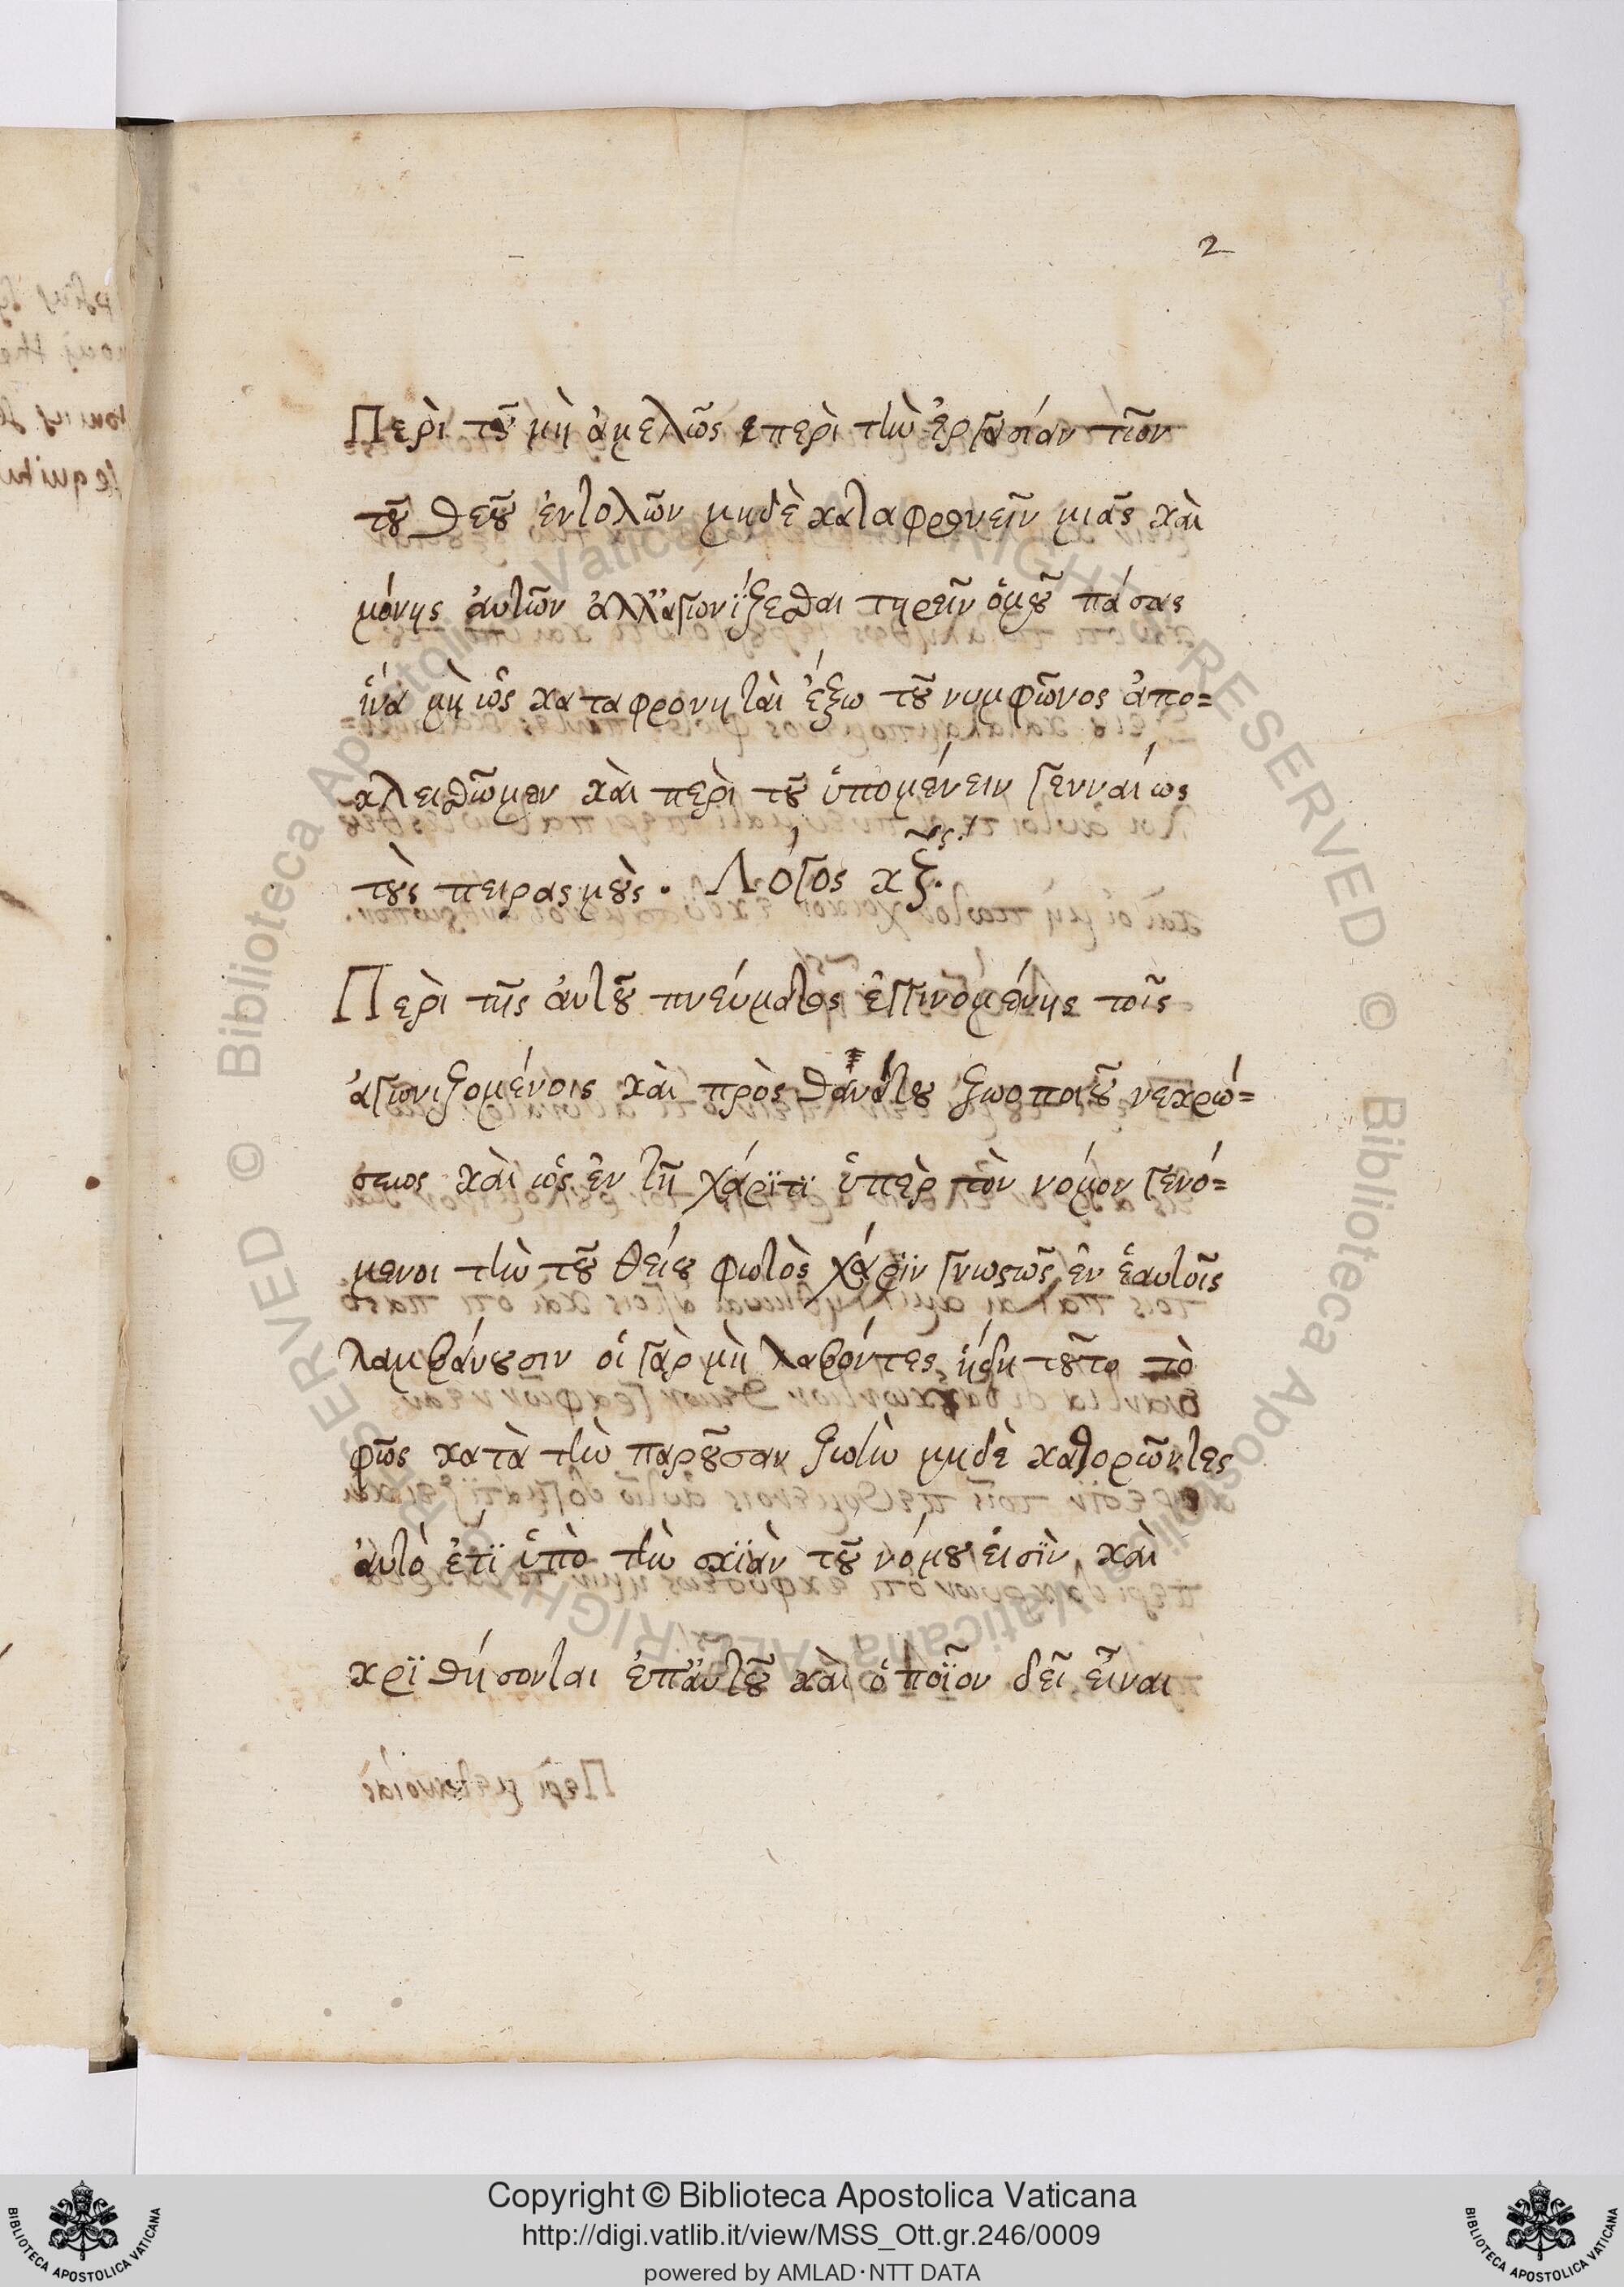 2
Περὶ τοῦ μὴ ἀμελῶς περὶ τὴν ἐργασίαν τῶν
τοῦ θεοῦ ἐντολῶν μηδὲ καταφρονεῖν μιᾶς καὶ
μόνης ἀυτῶν ἀλλ' ἀγωνΐζεσθαι τηρεῖν ὁμοῦ πάσας
ἵνα μὴ ὡς καταφρονηταὶ ἔξω τοῦ νυμφῶνος ἀπο=
κλεισθῶμεν καὶ περὶ τοῦ ὑπομένειν γενναίως
τοὺς πειρασμοὺς. Λόγος κζ.
Περὶ τῆς ἀυτοῦ πνεύματος ἐγγινομένης τοῖς
ἀγωνιζομένοις καὶ πρὸς θανάτου ζωοποιοῦ νεκρώ=
σεως καὶ ὡς ἐν τῇ χάρϊτϊ ὑπὲρ τὸν νόμον γενό=
μενοι τὴν τοῦ θείου φωτὸς χάρϊν γνωστῶς ἐν ἑαυτοῖς
λαμβάνουσιν οἱ γὰρ μὴ λαβόντες ἤδη τοῦτο τὸ
φῶς κατὰ τὴν παροῦσαν ζωὴν μηδὲ καθορῶντες
ἀυτὸ ἔτϊ ὑπὸ τὴν σκϊὰν τοῦ νόμου ἐισϊν καὶ
κρϊθήσονται ὑπ' ἀυτοῦ καὶ ὁποῖον δεῖ εἶναι
Copyright © Biblioteca Apostolica Vaticana
http://digi.vatlib.it/view/MSS_Ott.gr.246/0009
powered by AMLAD·NTT DATA
BIBLIOTECA APOSTOLICA VATICANA
BIBLIOTECA APOSTOLICA VATICANA